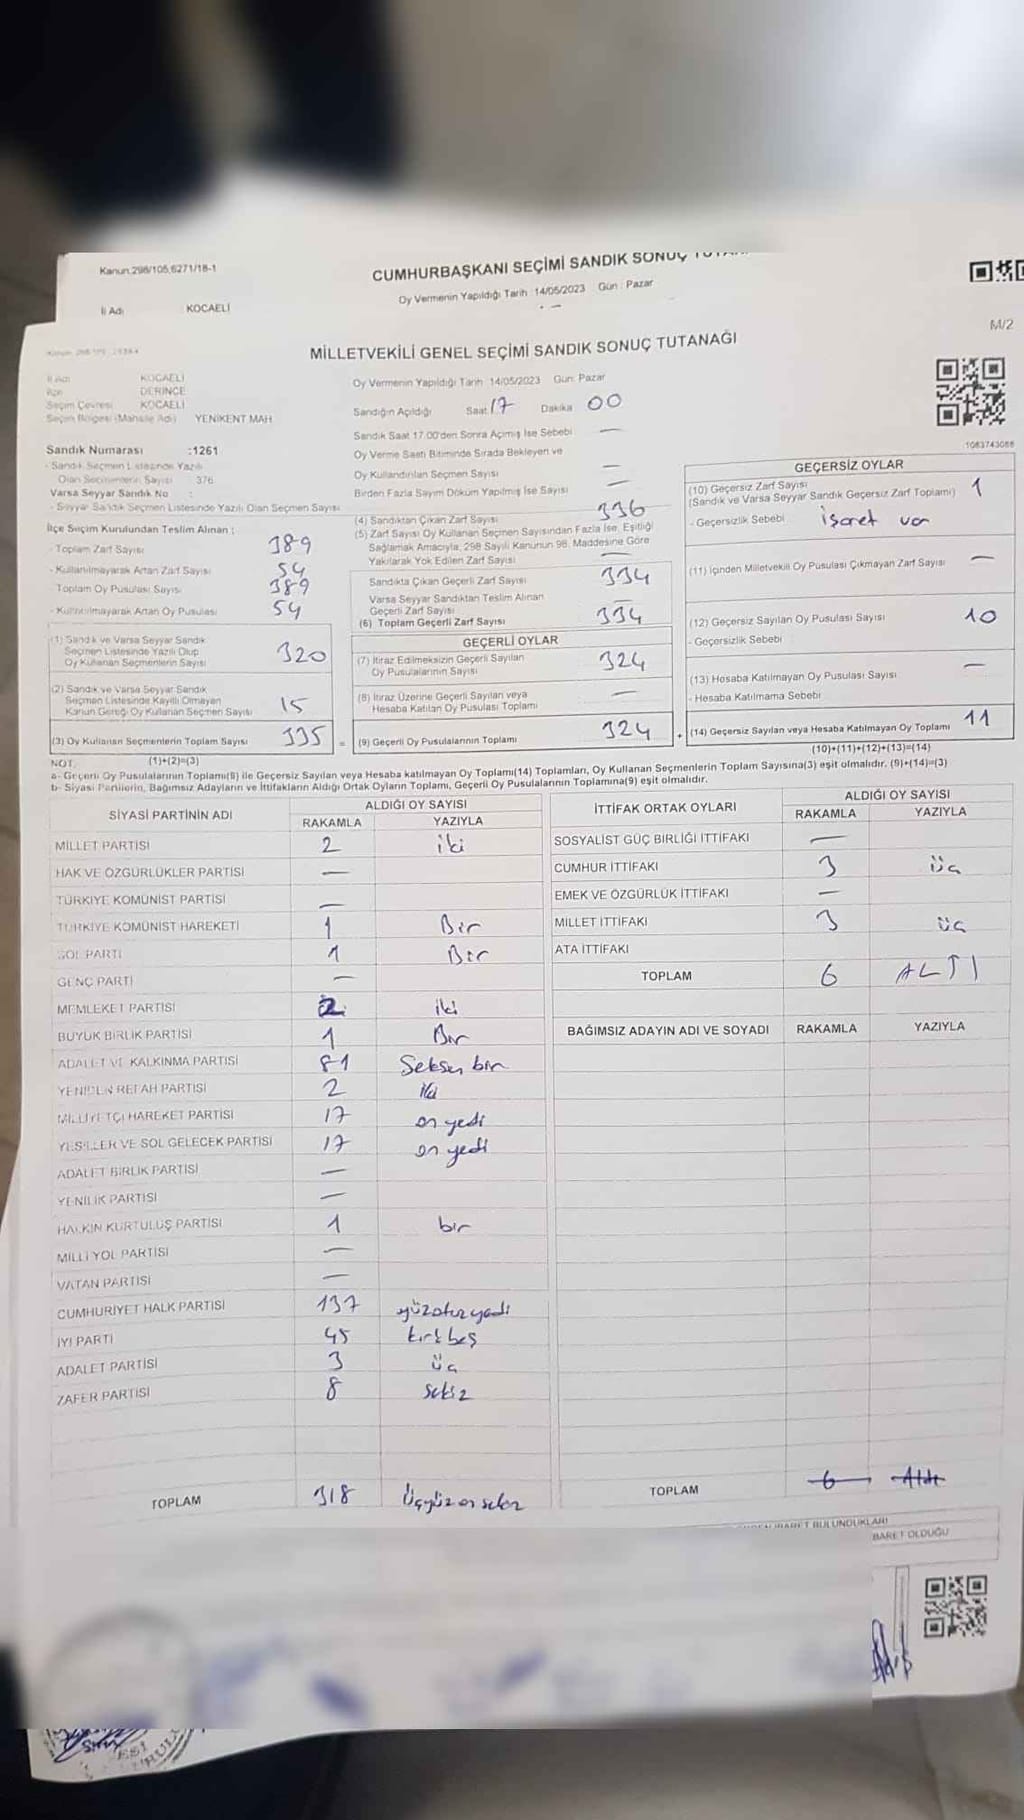 Kanun:298/105,6271/18-1
CUMHURBAŞKANI SEÇİMİ SANDIK SONUÇ
Oy Vermenin Yapıldığı Tarih : 14/05/2023 Gün : Pazar
İl Adı : KOCAELİ
M/2
MİLLETVEKİLİ GENEL SEÇİMİ SANDIK SONUÇ TUTANAĞI
İl Adı KOCAELİ
İlçe DERİNCE
Seçim Çevresi KOCAELİ
Seçim Bölgesi (Mahalle Adı) YENİKENT MAH
Sandık Numarası :1261
- Sandık Seçmen Listesinde Yazılı
Olan Seçmenlerin Sayısı 376
Varsa Seyyar Sandık No :
- Seyyar Sandık Seçmen Listesinde Yazılı Olan Seçmen Sayısı
İlçe Seçim Kurulundan Teslim Alınan ;
- Toplam Zarf Sayısı 389
- Kullanılmayarak Artan Zarf Sayısı 54
Toplam Oy Pusulası Sayısı 389
- Kullanılmayarak Artan Oy Pusulası 54
(1) Sandık ve Varsa Seyyar Sandık
Seçmen Listesinde Yazılı Olup
Oy Kullanan Seçmenlerin Sayısı 320
(2) Sandık ve Varsa Seyyar Sandık
Seçmen Listesinde Kayıtlı Olmayan
Kanun Gereği Oy Kullanan Seçmen Sayısı 15
(3) Oy Kullanan Seçmenlerin Toplam Sayısı 335 =
(1)+(2)=(3)
Oy Vermenin Yapıldığı Tarih : 14/05/2023 Gün: Pazar
Sandığın Açıldığı Saat 17 Dakika 00
Sandık Saat 17.00'den Sonra Açımış İse Sebebi —
Oy Verme Saati Bitiminde Sırada Bekleyen ve
Oy Kullandırılan Seçmen Sayısı —
Birden Fazla Sayım Döküm Yapılmış İse Sayısı —
(4) Sandıktan Çıkan Zarf Sayısı 336
(5) Zarf Sayısı Oy Kullanan Seçmen Sayısından Fazla İse, Eşitliği
Sağlamak Amacıyla, 298 Sayılı Kanunun 98. Maddesine Göre
Yakılarak Yok Edilen Zarf Sayısı —
Sandıkta Çıkan Geçerli Zarf Sayısı 334
Varsa Seyyar Sandıktan Teslim Alınan
Geçerli Zarf Sayısı —
(6) Toplam Geçerli Zarf Sayısı 334
GEÇERLİ OYLAR
(7) İtiraz Edilmeksizin Geçerli Sayılan
Oy Pusulalarının Sayısı 324
(8) İtiraz Üzerine Geçerli Sayılan veya
Hesaba Katılan Oy Pusulası Toplamı —
(9) Geçerli Oy Pusulalarının Toplamı 324 +
1083743088
GEÇERSİZ OYLAR
(10) Geçersiz Zarf Sayısı
(Sandık ve Varsa Seyyar Sandık Geçersiz Zarf Toplamı) 1
- Geçersizlik Sebebi işaret var
(11) İçinden Milletvekili Oy Pusulası Çıkmayan Zarf Sayısı —
(12) Geçersiz Sayılan Oy Pusulası Sayısı 10
- Geçersizlik Sebebi
(13) Hesaba Katılmayan Oy Pusulası Sayısı —
- Hesaba Katılmama Sebebi
(14) Geçersiz Sayılan veya Hesaba Katılmayan Oy Toplamı 11
(10)+(11)+(12)+(13)=(14)
NOT:
a- Geçerli Oy Pusulalarının Toplamı(9) ile Geçersiz Sayılan veya Hesaba katılmayan Oy Toplamı(14) Toplamları, Oy Kullanan Seçmenlerin Toplam Sayısına(3) eşit olmalıdır. (9)+(14)=(3)
b- Siyasi Partilerin, Bağımsız Adayların ve İttifakların Aldığı Ortak Oyların Toplamı, Geçerli Oy Pusulalarının Toplamına(9) eşit olmalıdır.
SİYASİ PARTİNİN ADI ALDIĞI OY SAYISI
RAKAMLA YAZIYLA
MİLLET PARTİSİ 2 iki
HAK VE ÖZGÜRLÜKLER PARTİSİ —
TÜRKİYE KOMÜNİST PARTİSİ —
TÜRKİYE KOMÜNİST HAREKETİ 1 Bir
SOL PARTİ 1 Bir
GENÇ PARTİ —
MEMLEKET PARTİSİ 2 iki
BÜYÜK BİRLİK PARTİSİ 1 Bir
ADALET VE KALKINMA PARTİSİ 81 Seksen bir
YENİDEN REFAH PARTİSİ 2 iki
MİLLİYETÇİ HAREKET PARTİSİ 17 on yedi
YEŞİLLER VE SOL GELECEK PARTİSİ 17 on yedi
ADALET BİRLİK PARTİSİ —
YENİLİK PARTİSİ —
HALKIN KURTULUŞ PARTİSİ 1 bir
MİLLİ YOL PARTİSİ —
VATAN PARTİSİ —
CUMHURİYET HALK PARTİSİ 137 yüzotuzyedi
İYİ PARTİ 45 kırkbeş
ADALET PARTİSİ 3 üç
ZAFER PARTİSİ 8 sekiz
TOPLAM 318 Üçyüz on sekiz
İTTİFAK ORTAK OYLARI ALDIĞI OY SAYISI
RAKAMLA YAZIYLA
SOSYALİST GÜÇ BİRLİĞİ İTTİFAKI —
CUMHUR İTTİFAKI 3 üç
EMEK VE ÖZGÜRLÜK İTTİFAKI —
MİLLET İTTİFAKI 3 üç
ATA İTTİFAKI
TOPLAM 6 ALTI
BAĞIMSIZ ADAYIN ADI VE SOYADI RAKAMLA YAZIYLA
TOPLAM 6 Altı
BULUNDUKLARI
BARET OLDUĞU